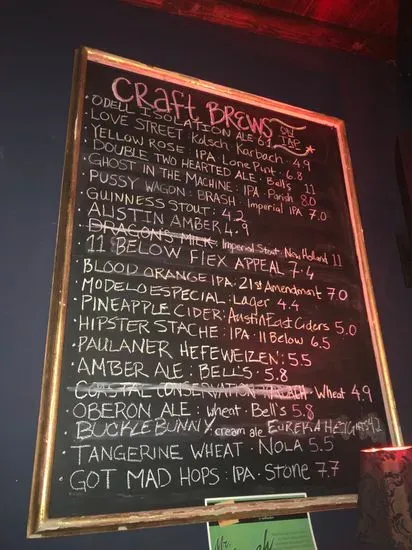 CRAFT BREWS ON TAP
· ODELL ISOLATION ALE 6.1
· LOVE STREET Kolsch Karbach · 4.9
· YELLOW ROSE IPA · Lone Pint · 6.8
· DOUBLE TWO HEARTED ALE : Bell's 11
· GHOST IN THE MACHINE : IPA · Parish 8.0
· PUSSY WAGON : BRASH : Imperial IPA 7.0
· GUINNESS STOUT : 4.2
· AUSTIN AMBER 4.9
· DRAGON'S MILK : Imperial Stout · New Holland 11
· 11 BELOW FLEX APPEAL 7.4
· BLOOD ORANGE IPA : 21st Amendment 7.0
· MODELO ESPECIAL : Lager 4.4
· PINEAPPLE CIDER : Austin East Ciders 5.0
· HIPSTER STACHE : IPA · 11 Below 6.5
· PAULANER HEFEWEIZEN : 5.5
· AMBER ALE : BELL'S · 5.8
· COASTAL CONSERVATION · KARBACH · Wheat 4.9
· OBERON ALE : wheat · Bell's 5.8
· BUCKLE BUNNY cream ale EUREKA HEIGHTS 4.2
· TANGERINE WHEAT · NOLA 5.5
· GOT MAD HOPS : IPA · Stone 7.7